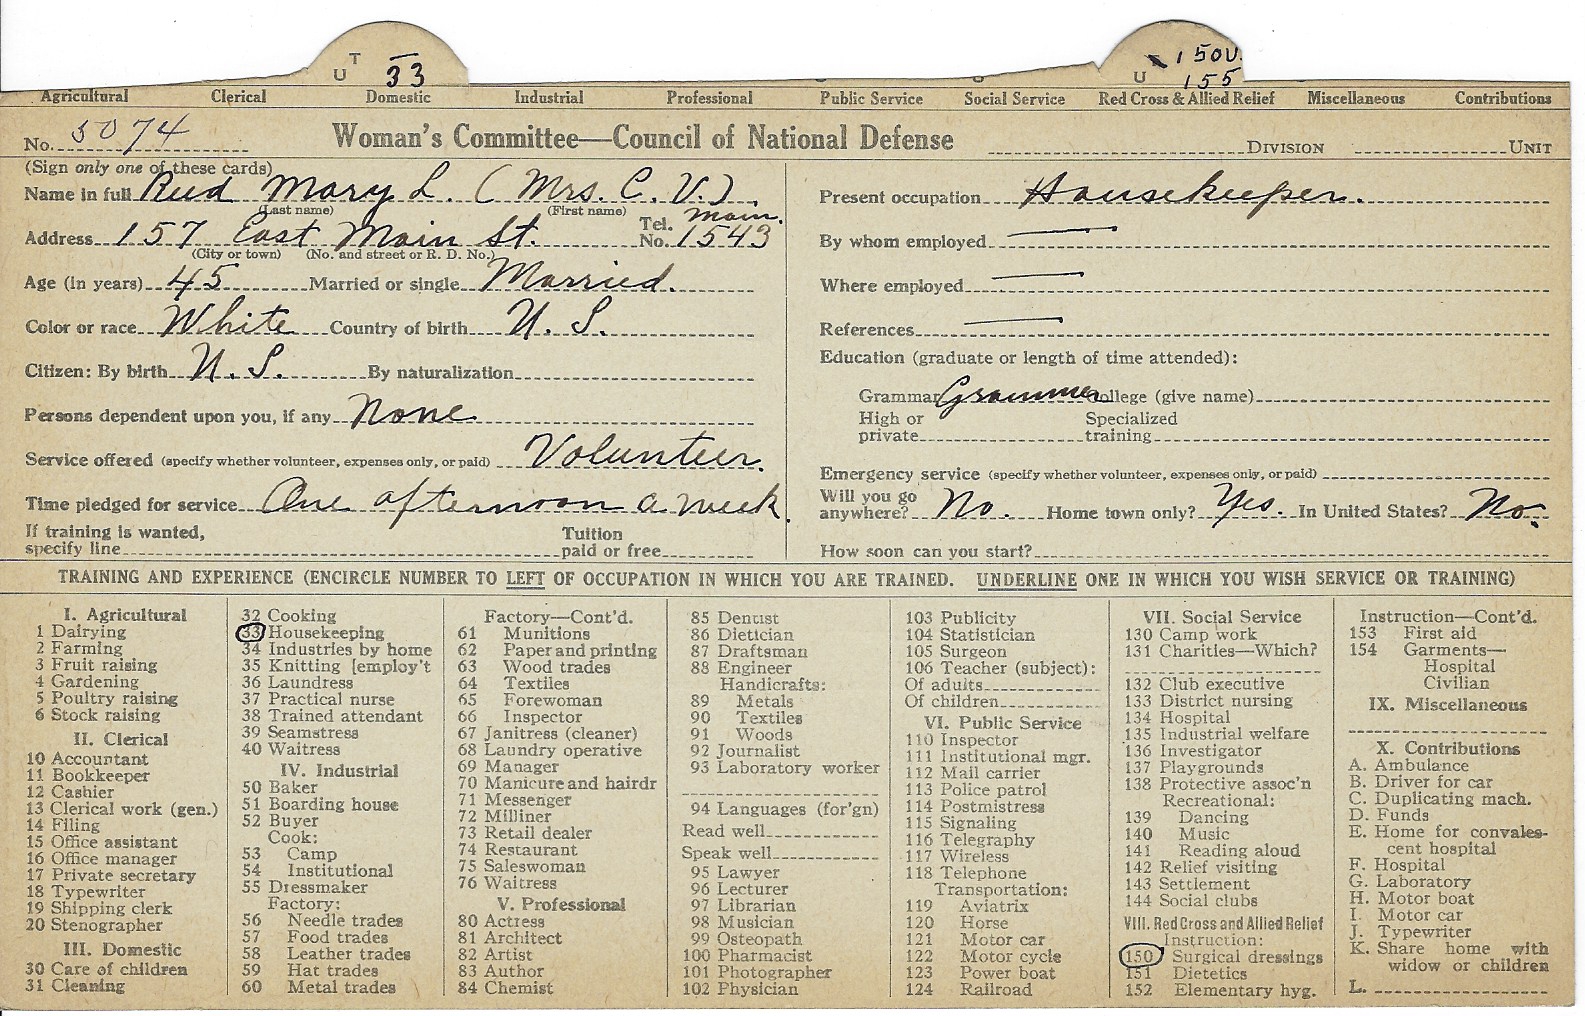 T
U 33
150V.
U 155
Agricultural Clerical Domestic Industrial Professional Public Service Social Service Red Cross & Allied Relief Miscellaneous Contributions
No. 5074 Woman's Committee—Council of National Defense DIVISION UNIT
(Sign only one of these cards)
Name in full Reed Mary L. (Mrs. C. V.).
(Last name) (First name)
Address 157 East Main St. Tel. No. Main. 1543
(City or town) (No. and street or R. D. No.)
Age (in years) 45 Married or single Married.
Color or race White Country of birth U. S.
Citizen: By birth U. S. By naturalization
Persons dependent upon you, if any None
Service offered (specify whether volunteer, expenses only, or paid) Volunteer.
Time pledged for service One afternoon a week.
If training is wanted,
specify line Tuition paid or free
Present occupation Housekeeper.
By whom employed —
Where employed —
References —
Education (graduate or length of time attended):
Grammar Grammer College (give name)
High or private Specialized training
Emergency service (specify whether volunteer, expenses only, or paid)
Will you go anywhere? No. Home town only? Yes. In United States? No.
How soon can you start?
TRAINING AND EXPERIENCE (ENCIRCLE NUMBER TO LEFT OF OCCUPATION IN WHICH YOU ARE TRAINED. UNDERLINE ONE IN WHICH YOU WISH SERVICE OR TRAINING)
I. Agricultural
1 Dairying
2 Farming
3 Fruit raising
4 Gardening
5 Poultry raising
6 Stock raising
II. Clerical
10 Accountant
11 Bookkeeper
12 Cashier
13 Clerical work (gen.)
14 Filing
15 Office assistant
16 Office manager
17 Private secretary
18 Typewriter
19 Shipping clerk
20 Stenographer
III. Domestic
30 Care of children
31 Cleaning
32 Cooking
33 Housekeeping
34 Industries by home
35 Knitting [employ't
36 Laundress
37 Practical nurse
38 Trained attendant
39 Seamstress
40 Waitress
IV. Industrial
50 Baker
51 Boarding house
52 Buyer
Cook:
53 Camp
54 Institutional
55 Dressmaker
Factory:
56 Needle trades
57 Food trades
58 Leather trades
59 Hat trades
60 Metal trades
Factory—Cont'd.
61 Munitions
62 Paper and printing
63 Wood trades
64 Textiles
65 Forewoman
66 Inspector
67 Janitress (cleaner)
68 Laundry operative
69 Manager
70 Manicure and hairdr
71 Messenger
72 Milliner
73 Retail dealer
74 Restaurant
75 Saleswoman
76 Waitress
V. Professional
80 Actress
81 Architect
82 Artist
83 Author
84 Chemist
85 Dentist
86 Dietician
87 Draftsman
88 Engineer
Handicrafts:
89 Metals
90 Textiles
91 Woods
92 Journalist
93 Laboratory worker
94 Languages (for'gn)
Read well
Speak well
95 Lawyer
96 Lecturer
97 Librarian
98 Musician
99 Osteopath
100 Pharmacist
101 Photographer
102 Physician
103 Publicity
104 Statistician
105 Surgeon
106 Teacher (subject):
Of adults
Of children
VI. Public Service
110 Inspector
111 Institutional mgr.
112 Mail carrier
113 Police patrol
114 Postmistress
115 Signaling
116 Telegraphy
117 Wireless
118 Telephone
Transportation:
119 Aviatrix
120 Horse
121 Motor car
122 Motor cycle
123 Power boat
124 Railroad
VII. Social Service
130 Camp work
131 Charities—Which?
132 Club executive
133 District nursing
134 Hospital
135 Industrial welfare
136 Investigator
137 Playgrounds
138 Protective assoc'n
Recreational:
139 Dancing
140 Music
141 Reading aloud
142 Relief visiting
143 Settlement
144 Social clubs
VIII. Red Cross and Allied Relief
Instruction:
150 Surgical dressings
151 Dietetics
152 Elementary hyg.
Instruction—Cont'd.
153 First aid
154 Garments—
Hospital
Civilian
IX. Miscellaneous
X. Contributions
A. Ambulance
B. Driver for car
C. Duplicating mach.
D. Funds
E. Home for convales-
cent hospital
F. Hospital
G. Laboratory
H. Motor boat
I. Motor car
J. Typewriter
K. Share home with
widow or children
L.